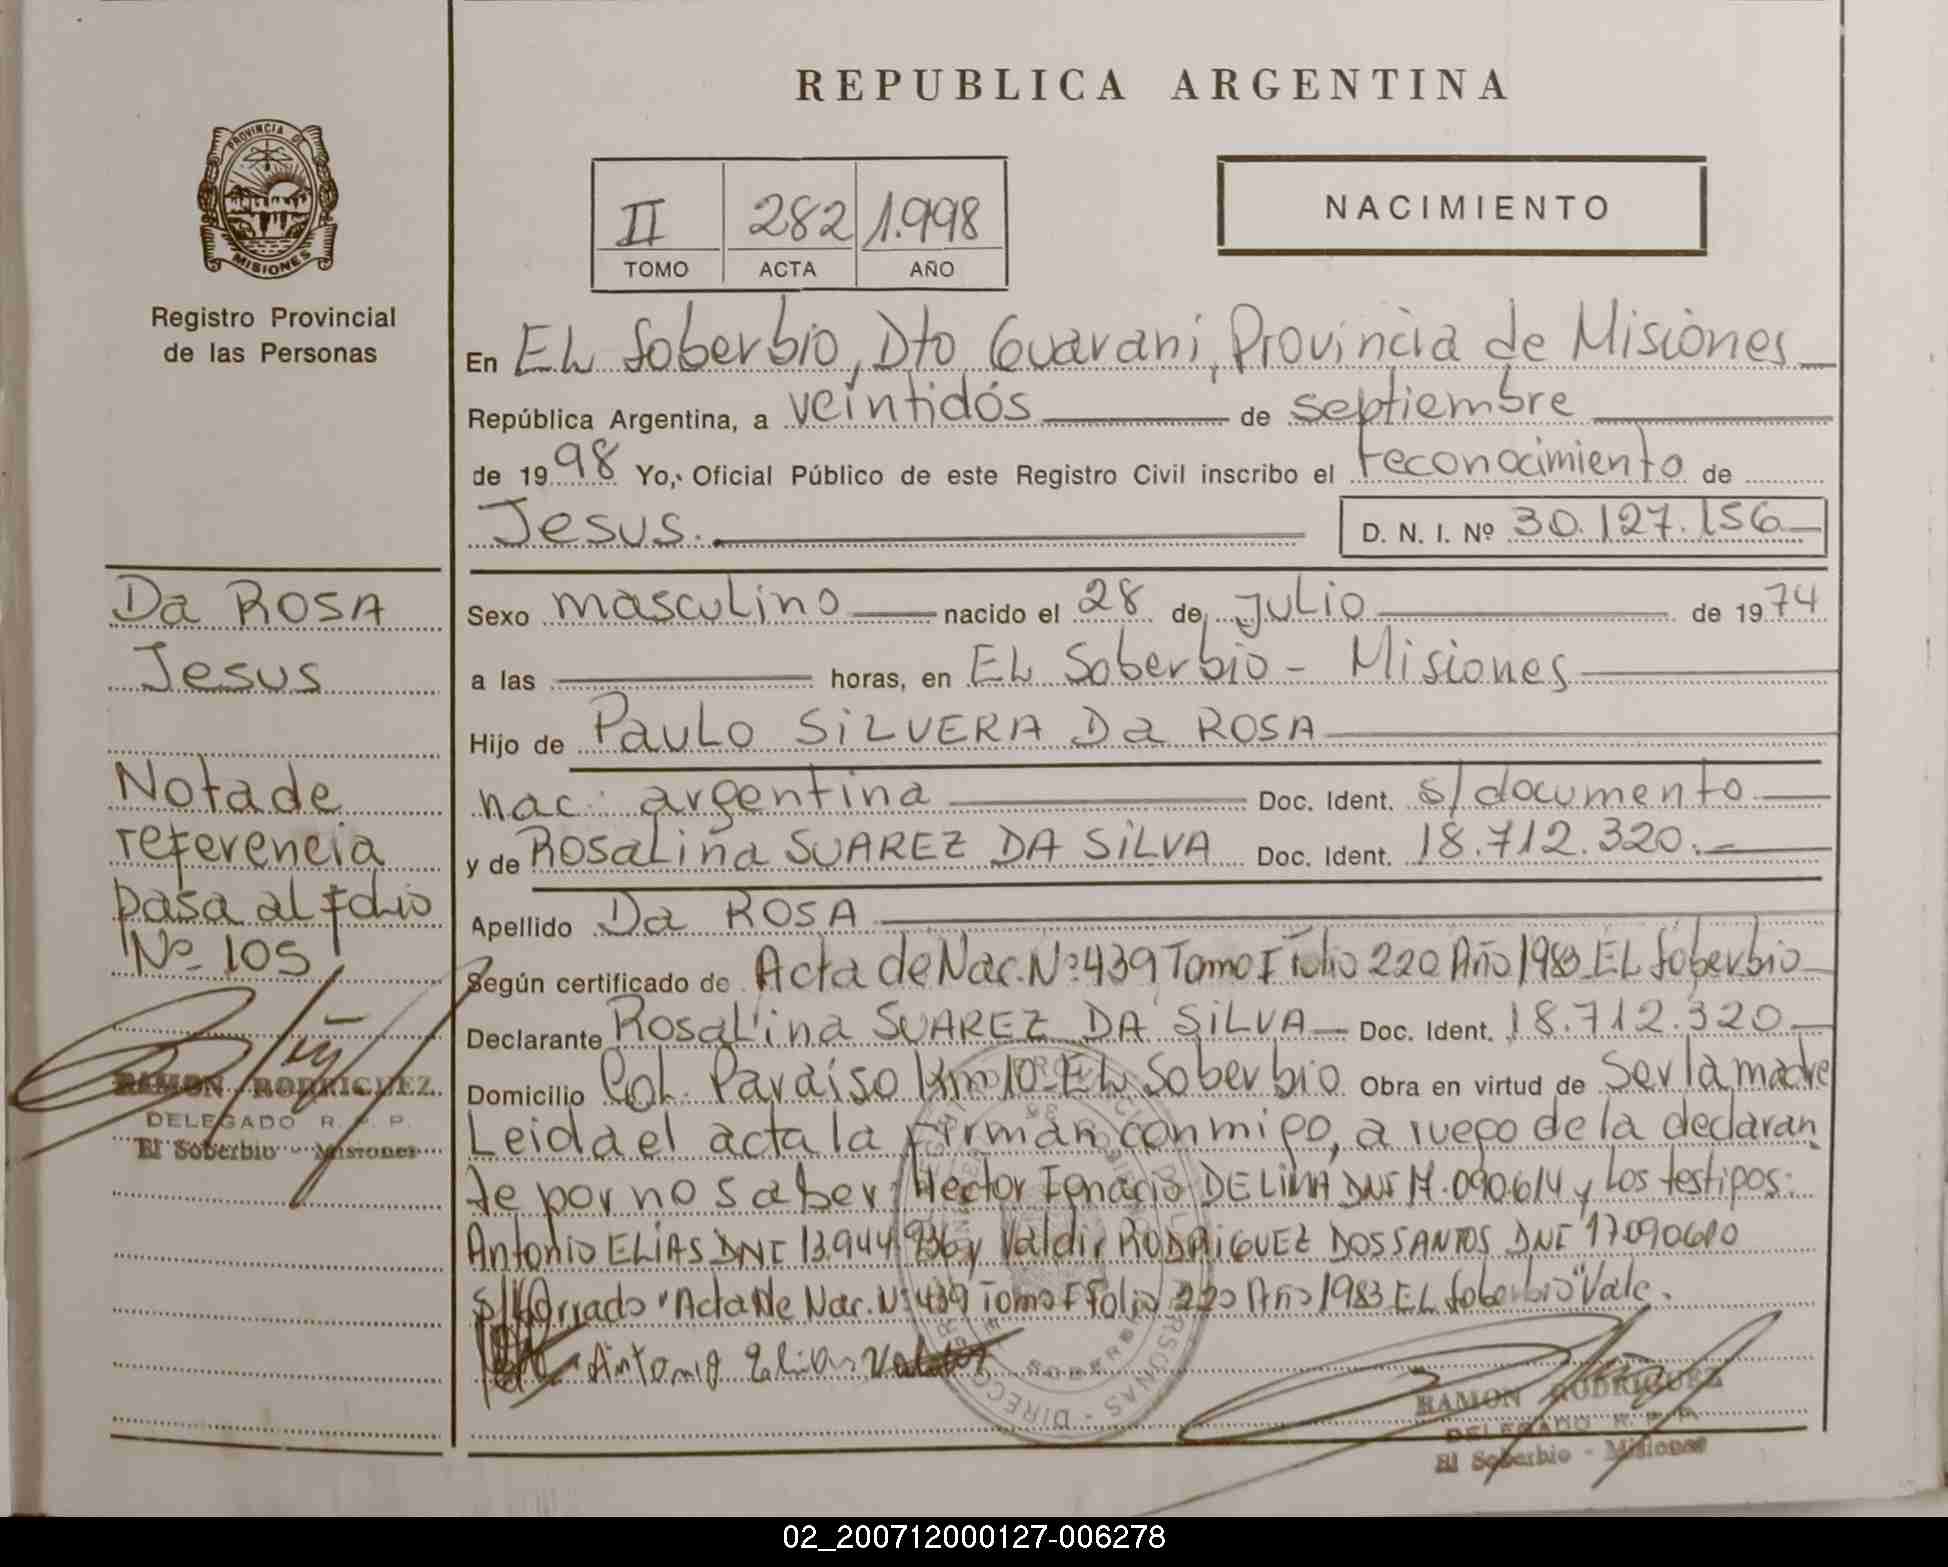 REPUBLICA ARGENTINA
PROVINCIA DE
MISIONES
Registro Provincial
de las Personas
II 282 1.998
TOMO ACTA AÑO
NACIMIENTO
En EL Soberbio, Dto Guarani, Provincia de Misiones
República Argentina, a veintidós de septiembre
de 1998 Yo, Oficial Público de este Registro Civil inscribo el reconocimiento de
Jesus. D. N. I. Nº 30.127.156
Da ROSA
Jesus
Nota de
referencia
pasa al folio
Nº 105
RAMON RODRIGUEZ
DELEGADO R. P. P.
El Soberbio - Misiones
Sexo masculino nacido el 28 de Julio de 1974
a las horas, en EL Soberbio - Misiones
Hijo de PauLo SiLVERA Da ROSA
nac: argentina Doc. Ident. s/documento
y de Rosalina SUAREZ DA SiLVA Doc. Ident. 18.712.320.
Apellido Da ROSA
Según certificado de Acta de Nac. Nº 439 Tomo I Folio 220 Año 1983 EL Soberbio
Declarante Rosalina SUAREZ DA SiLVA Doc. Ident. 18.712.320
Domicilio Col. Paraíso Km 10 - EL Soberbio Obra en virtud de ser la madre
Leida el acta la firman conmigo, a ruego de la declaran
te por no saber: Hector Ignacio DE LIMA DNI 17.090.614 y los testigos:
Antonio ELIAS DNI 13.944.936 y Valdir RODRIGUEZ DOS SANTOS DNI 17.090.610
s/borrado "Acta de Nac. Nº 439 Tomo I folio 220 Año 1983 EL Soberbio" Vale.
Antonio Elias
RAMON RODRIGUEZ
DELEGADO R. P. P.
El Soberbio - Misiones
02_200712000127-006278